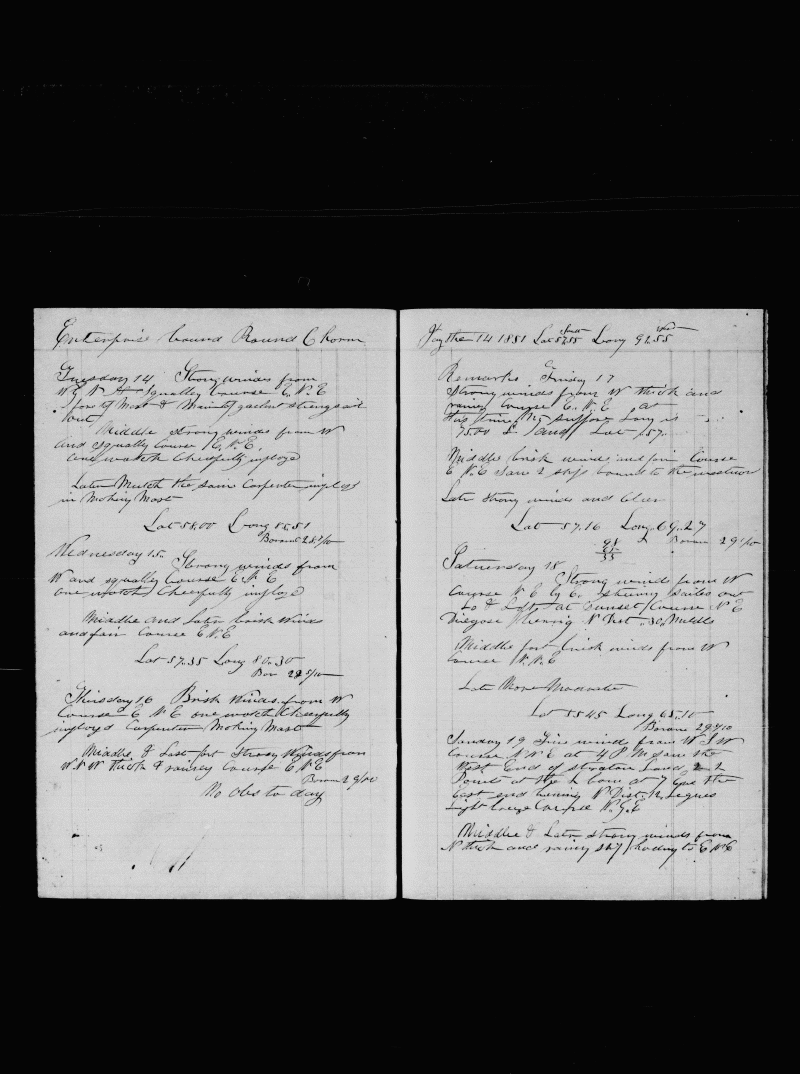 Enterprise bound Round C horn
Tuesday 14 Strong winds from
W & N squally Course E. N. E
Middle strong winds from W
and squally Course E. N. E.
one watch Cheerfully imploye
Later Mutch the same Carpenter
in Making Mast
Lat 58.00 Long 85.51
Barom
Wednesday 15. Strong winds from
W and squally Course E N. E
one watch Cheerfully imploye
Middle and Later brisk Winds
and fair Course E N E
Lat 57.35 Long 80.30
Bar
Thirsday 16 Brisk Winds from W
Course E N E one watch Cheerfully
imployd Carpenter Making Mast
Middle & Last part Strong Winds from
W. N W thick & rainey Course E N E
Barom 29/00
No Obs to day
the 14 1851 Lat 57.55 Long 91.55
Remarks Friday 17
Strong winds from W thick and
rainey Course E. N. E
this time suppose Long is
75.00 and Lat 57
Middle brisk winds and fair Course
E N. E Saw 2 ships bound to the westward
Later strong winds and Clear
Lat 57.16 Long 69.27
Barom
Saturday 18
Strong winds from W
Course N E by E. steering sailes out
at Sunset Course N E
Diegose N Dist 30 Milds
Middle part brisk winds from W
Course N. N. E
Later More Moderate
Lat 55 45 Long 65.10
Barom 29 7/10
Sunday 19 Fine winds from W S W
Course N N E at 4 P M saw the
West End of Land 2
Points at the L bow at 7 the
East end N Dist 12 Legues
Light
Middle & Later strong winds from
N thick and rainy E N E